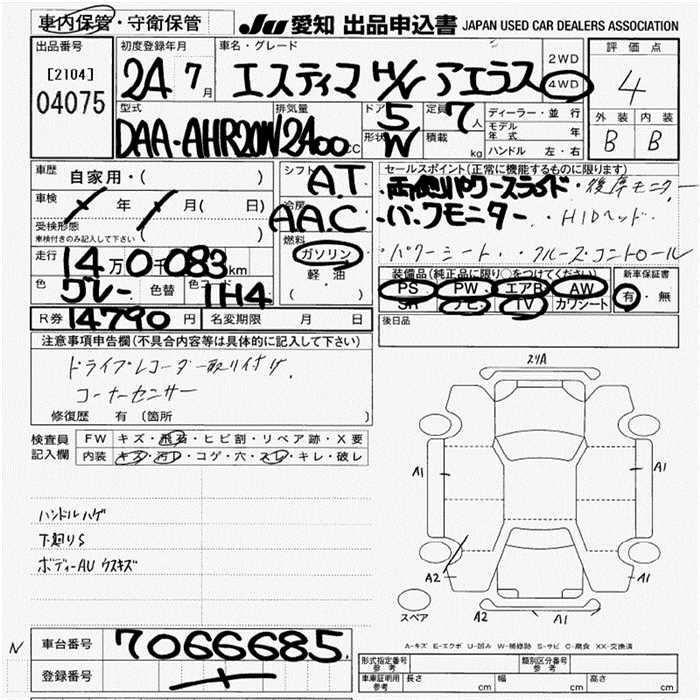 車内保管・守衛保管
JU 愛知 出品申込書 JAPAN USED CAR DEALERS ASSOCIATION
出品番号
[2104]
04075
初度登録年月
24 7月
車名・グレード
エスティマ H/V アエラス
2WD
4WD
評価点
4
外装 内装
B B
型式
DAA-AHR20W
排気量
2400cc
ドア
5
形状
W
定員
7人
積載 kg
ディーラー・並行
モデル年式 年
ハンドル 左・右
車歴
自家用・( )
車検 年 月( 日)
受検形態
車検付きのみ記入して下さい ( )
走行
14万0千083km
色
グレー
色替
色コード
1H4
R券 14790円
名変期限 月 日
シフト
A.T
冷房
AAC
燃料
ガソリン
軽・油
( )
セールスポイント(正常に機能するものに限ります)
・両側パワースライド・後席モニター
・バックモニター ・HIDヘッド
・パワーシート・クルーズコントロール
装備品(純正品に限り○をつけてください)
PS PW エアB AW
SR ナビ TV カワシート
新車保証書
有・無
後日品
注意事項申告欄(不具合内容等は具体的に記入して下さい)
ドライブレコーダー取り付け
コーナーセンサー
修復歴 有 (箇所 )
検査員記入欄
FW キズ・飛石・ヒビ割・リペア跡・X要
内装 キズ・汚レ・コゲ・穴・スレ・キレ・破レ
ハンドルハゲ
下廻りS
ボディーAU ウスキズ
ZリA
A1
A1
A2
A1
A2
A1
スペア
A-キズ E-エクボ U-凹み W-補修跡 S-サビ C-腐食 XX-交換済
N
車台番号 7066685
登録番号
形式指定番号 参考
類別区分番号 参考
車庫証明用 参考
長さ cm
幅 cm
高さ cm